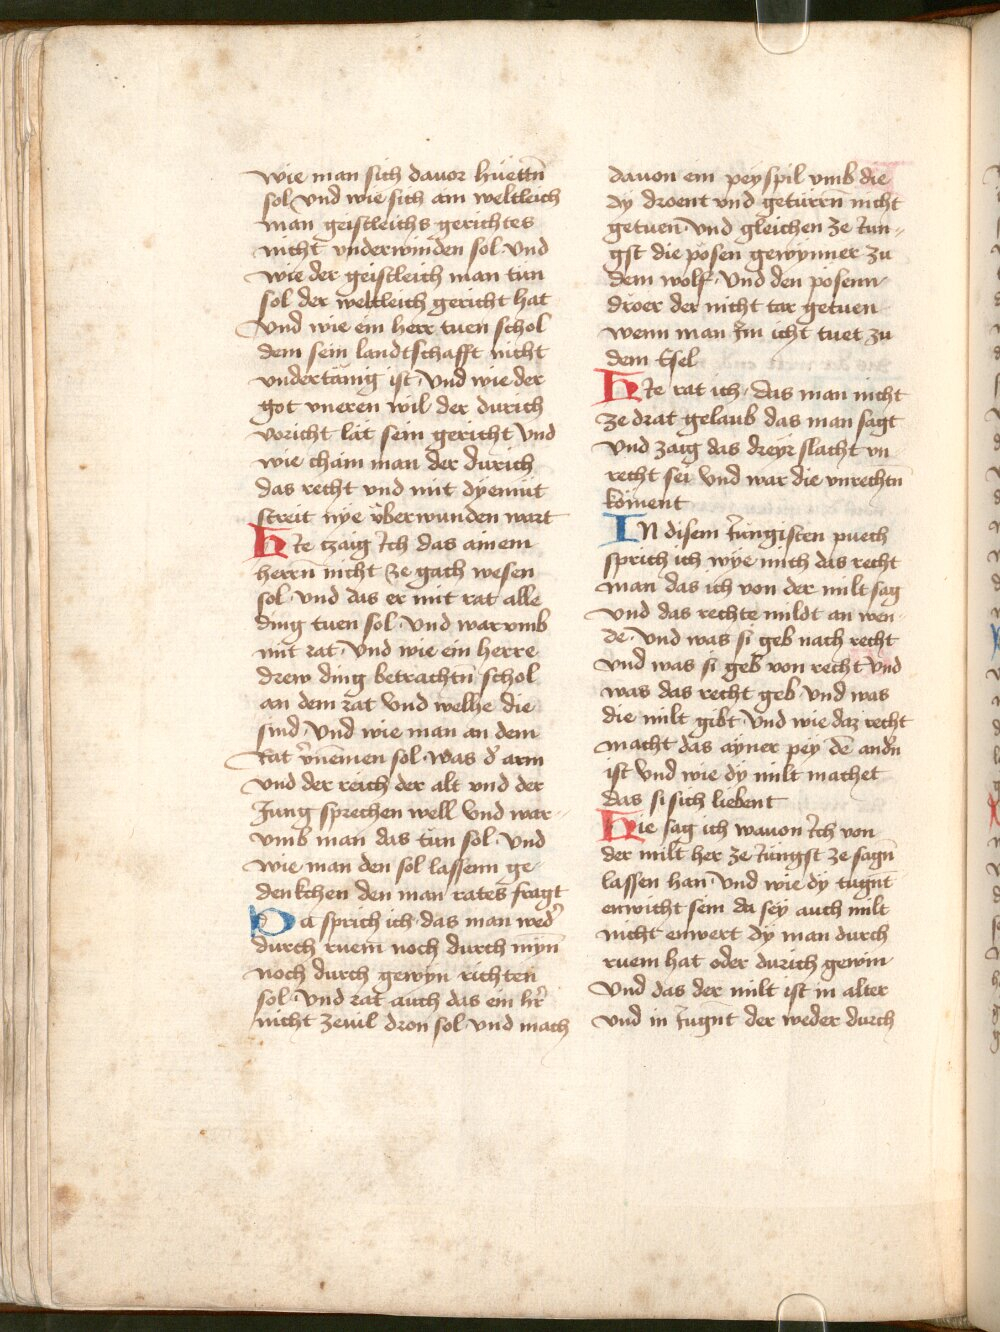 wie man sich dauor hüettn̄
sol vnd wie sich ain weltleich
man geistleichs gerichtes
nicht vnderwinden sol · vnd
wie der geistleich man tün
sol der weltleich gericht hat
vnd wie ein herr tuen schol
dem sein landtschafft nicht
vndertänig ist · vnd wie der
got vneren wil der durich
voricht lät sein gericht vnd
wie cham man der durich
das recht vnd mit dyemüt
streit nye vberwunden wart
Hie tzaig ich das ainem
herrn̄ nicht ze gach wesen
sol · vnd das er mit rat alle
ding tuen sol · vnd warvmb
mit rat · vnd wie ein herre
drew ding betrachtn̄ schol
an dem rat vnd welhe die
sind · vnd wie man an dem
Rat v̓nemen sol · was d̓ arm
vnd der reich der alt vnd der
Jung sprechen well vnd war-
vmb man das tün sol · vnd
wie man den sol lassenn ge-
denkchen den man rates fragt
Da sprich ich · das man wed̓
durch ruem noch durch mynn̄
noch durch gewyn richten
sol · vnd rat auch das ein hr̓
nicht zeuil dron sol vnd mach
dauon ein peyspil vmb die
dy droent vnd getürrn̄ nicht
getuen · vnd gleichen ze iun-
gst die pösen gewynner zu
dem wolf · vnd den posenn
droer der nicht tar getuen
wenn man Im icht tuet zu
dem Esel
Hie rat ich · das man nicht
ze drat gelaub das man sagt
vnd zaig das dreyr slacht vn
recht sei vnd war die vnrechtn̄
köment
IN disem iungisten puech
sprich ich wye mich das recht
man das ich von der milt sag
vnd das rechte mildt an wen-
de · vnd was si geb nach recht
vnd was si geb von recht vnd
was das recht geb · vnd was
die milt gibt · vnd wie daz recht
macht das ayner pey dē andn̓
ist vnd wie dy milt machet
das si sich liebent
Hie sag ich wauon ich von
der milt her ze iungst ze sagn̄
lassen han · vnd wie dy tugnt
enwicht sein da sey auch milt
nicht enwert dy man durch
ruem hat oder durich gewin
vnd das der milt ist in alter
vnd in iugnt der weder durch